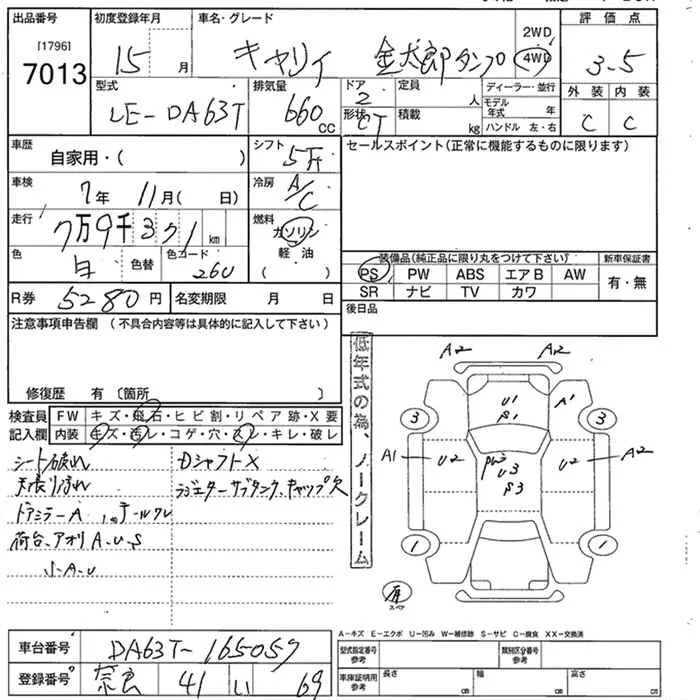 出品番号 初度登録年月 車名・グレード 2WD 評価点
[1796] 7013 15 月 キャリィ 金太郎ダンプ 4WD 3-5
型式 排気量 ドア 定員 ディーラー・並行 外装 内装
LE-DA63T 660 cc 2 人 モデル年式 年 C C
形状 CT 積載 kg ハンドル 左・右
車歴 自家用・( ) シフト 5F セールスポイント(正常に機能するものに限ります)
車検 7年 11月( 日) 冷房 A/C
走行 7万9千371km 燃料 ガソリン
色 白 色替 色コード 26U 軽油 ( )
装備品(純正品に限り丸をつけて下さい) 新車保証書
PS PW ABS エアB AW 有・無
SR ナビ TV カワ
R券 5280円 名変期限 月 日 後日品
注意事項申告欄 (不具合内容等は具体的に記入して下さい)
修復歴 有 〔箇所 〕
検査員 FW キズ・飛石・ヒビ割・リペア跡・X要
記入欄 内装 キズ・汚レ・コゲ・穴・スレ・キレ・破レ
シート破れ DシャフトX
天張り汚れ ラジエターサブタンク、キャップ欠
ドアミラーA
荷台、アオリ A・U・S
低年式の為、ノークレーム
A2 A2
U1 A1
S1
3 3
A1 U2 U3 U2 A2
S3
1 1
スペア
A-キズ E-エクボ U-凹み W-補修跡 S-サビ C-腐食 XX-交換済
車台番号 DA63T-165057 型式指定番号 参考 類別区分番号 参考
登録番号 奈良 41 い 69 車庫証明用 参考 長さ cm 幅 cm 高さ cm